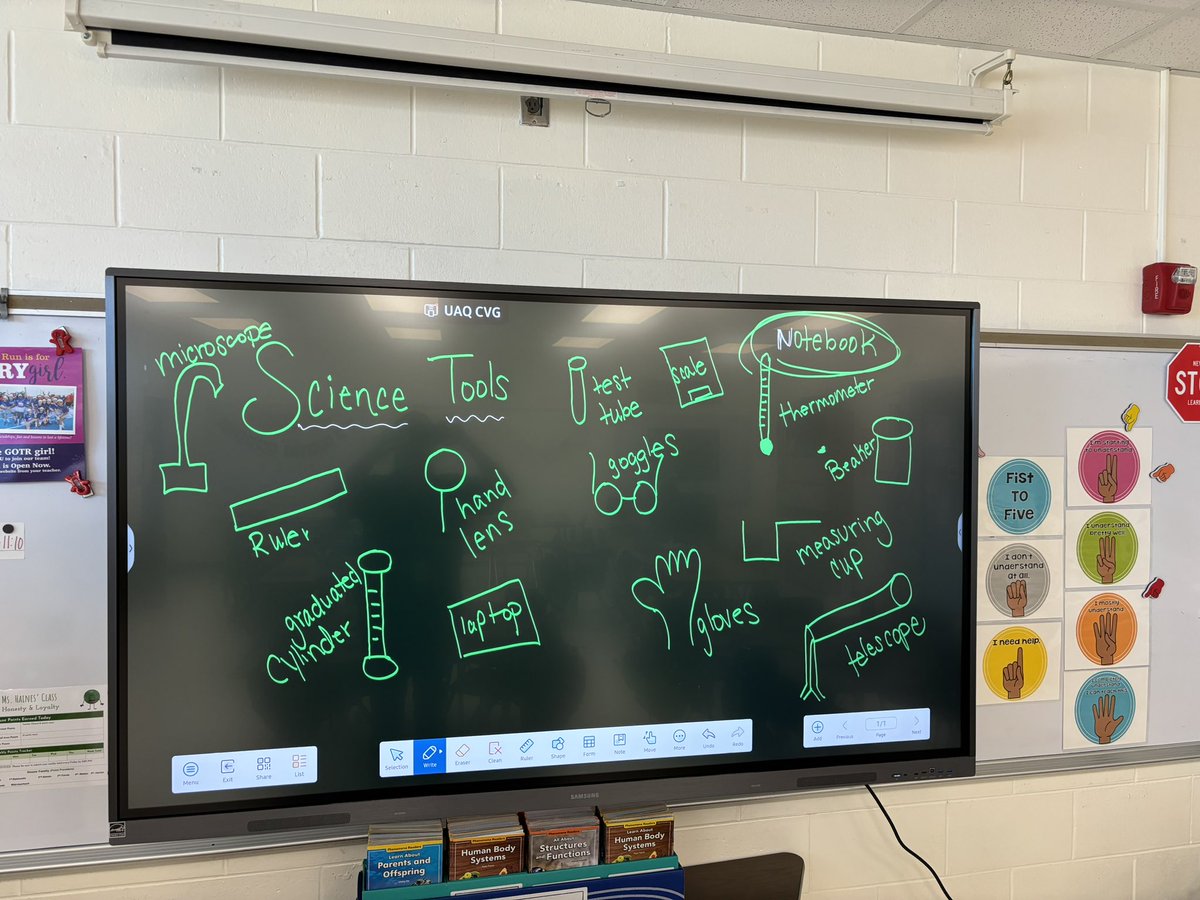 UAQ CVG
microscope
Science Tools
test
tube
scale
Notebook
thermometer
Beaker
goggles
hand
lens
Ruler
measuring
cup
graduated
cylinder
laptop
gloves
telescope
Menu
Exit
Share
List
Selection
Write
Eraser
Clean
Ruler
Shape
Form
Note
Move
More
Undo
Redo
Add
Previous
1/1
Page
Next
SAMSUNG
Run is for
RYgirl
e GOTR girl!
U to join our team!
is Open Now.
11:10
Ms. Haines' Class
Honesty & Loyalty
FIRE
STO
Fist
to
Five
I'm starting
to understand.
I don't
understand
at all.
I understand
pretty well.
I need help.
I mostly
understand.
Learn About
Parents and
Offspring
Learn About
Human Body
Systems
All About
Structures
and Functions
Learn About
Human Body
Systems